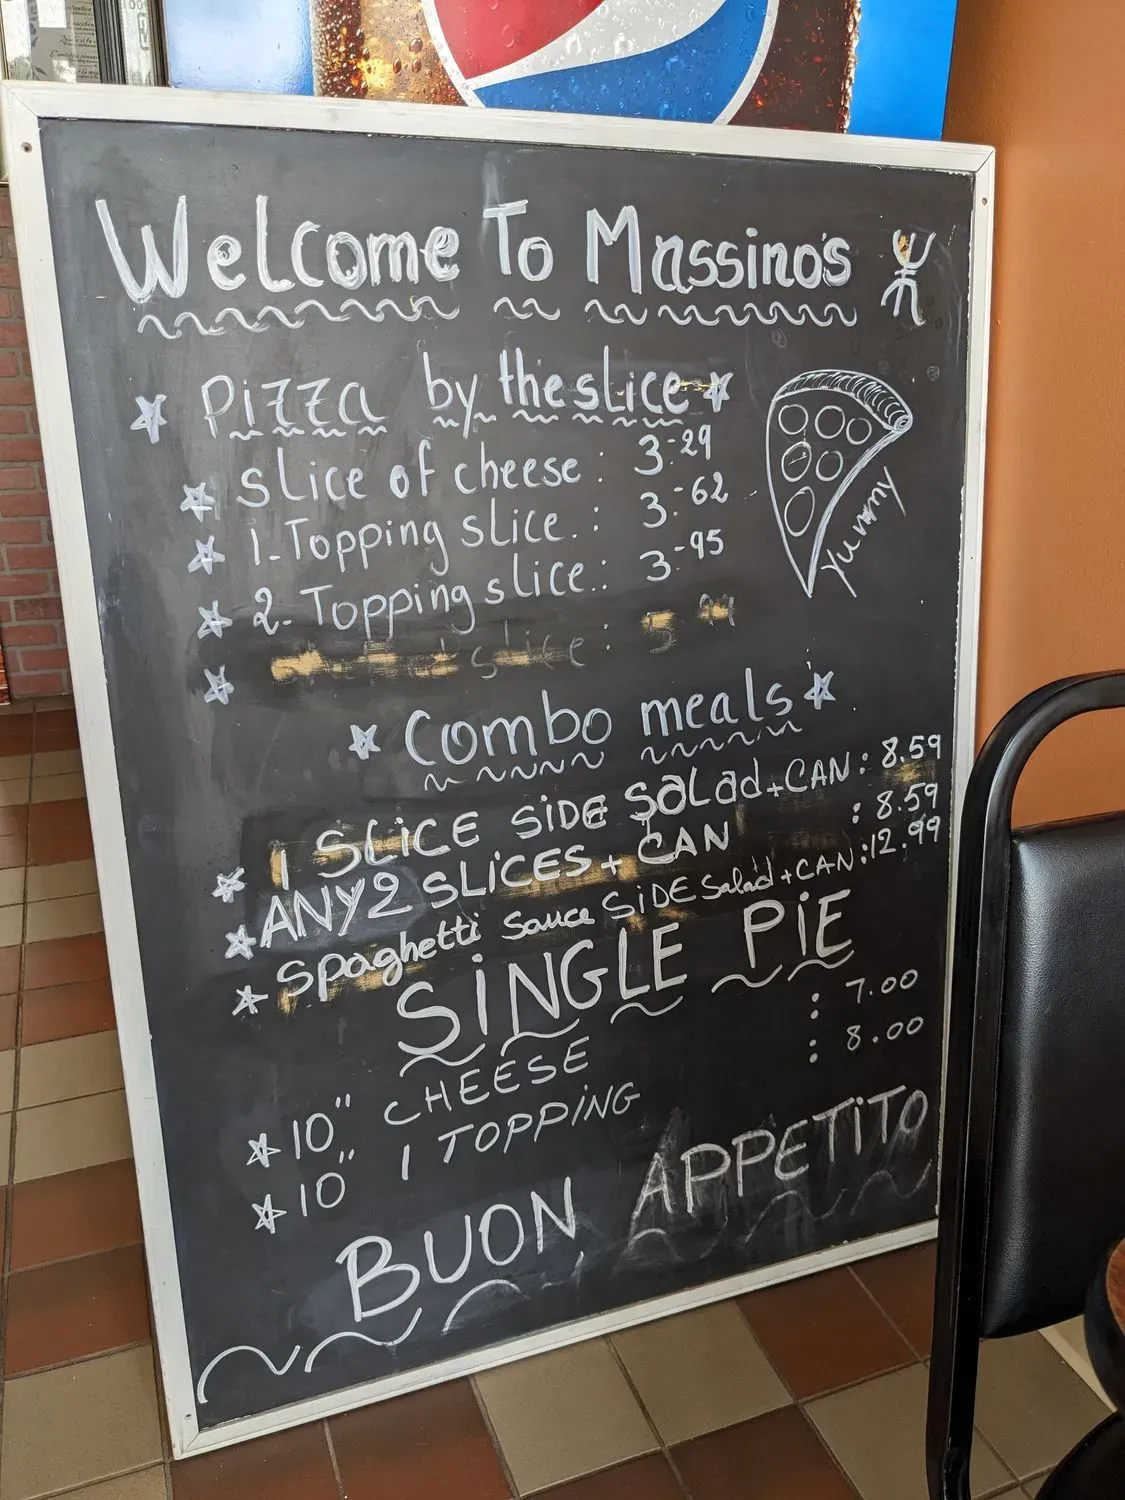 Welcome To Massino's
Pizza by the slice
slice of cheese : 3.29
1. Topping slice. : 3.62
2. Topping slice. : 3.95
slice : 5.99
Combo meals
1 SLiCE SiDE Salad + CAN : 8.59
ANY 2 SLiCES + CAN : 8.59
Spaghetti Sauce SiDE Salad + CAN : 12.99
SiNGLE PiE
10" CHEESE : 7.00
10" 1 TOPPiNG : 8.00
BUON APPETiTO
Yummy